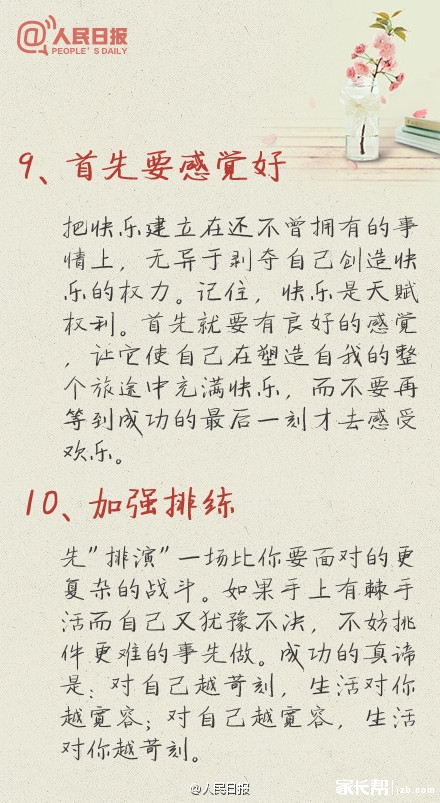 @人民日报
PEOPLE'S DAILY
9、首先要感觉好
把快乐建立在还不曾拥有的事
情上，无异于剥夺自己创造快
乐的权力。记住，快乐是天赋
权利。首先就要有良好的感觉
，让它使自己在塑造自我的整
个旅途中充满快乐，而不要再
等到成功的最后一刻才去感受
欢乐。
10、加强排练
先"排演"一场比你要面对的更
复杂的战斗。如果手上有棘手
活而自己又犹豫不决，不妨挑
件更难的事先做。成功的真谛
是：对自己越苛刻，生活对你
越宽容；对自己越宽容，生活
对你越苛刻。
@人民日报
家长帮 jzb.com